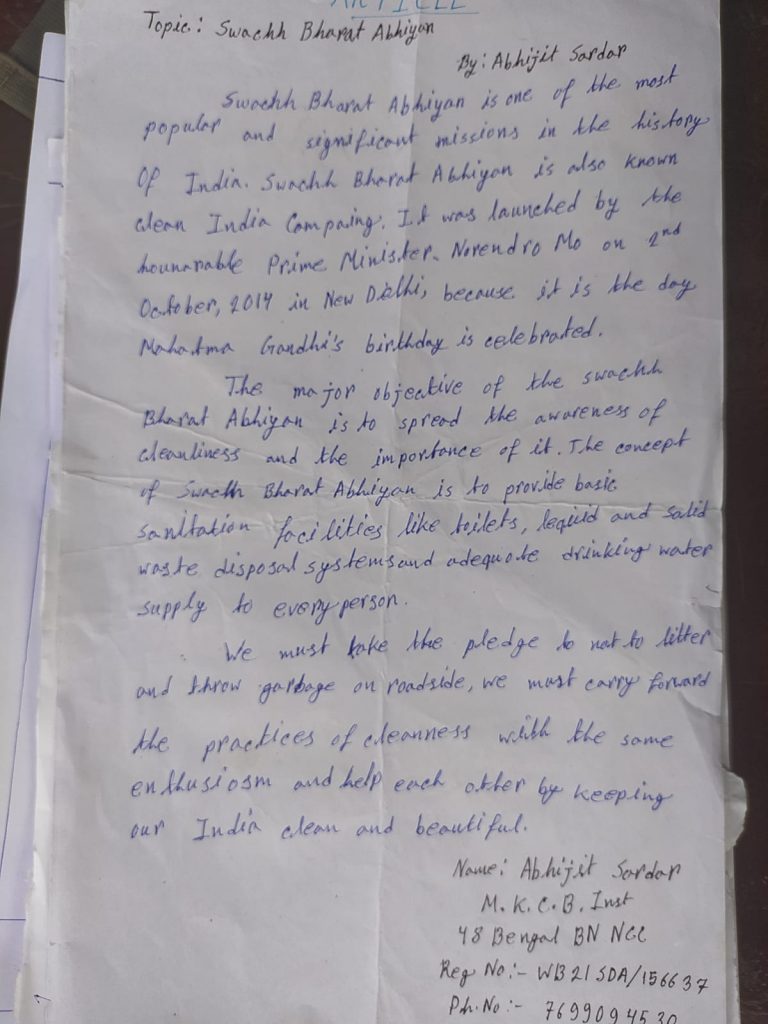 ARTICLE
Topic: Swachh Bharat Abhiyan
By: Abhijit Sardar
Swachh Bharat Abhiyan is one of the most
popular and significant missions in the history
Of India. Swachh Bharat Abhiyan is also known
clean India Compaing. It was launched by the
hounarable Prime Minister. Norendro Mo on 2nd
October, 2014 in New Delhi, because it is the day
Mahatma Gandhi's birthday is celebrated.
The major objective of the swachh
Bharat Abhiyan is to spread the awareness of
cleanliness and the importance of it. The concept
of Swachh Bharat Abhiyan is to provide basic
sanitation facilities like toilets, lequid and salid
waste disposal systems and adequate drinking water
supply to every person.
We must take the pledge to not to litter
and throw garbage on roadside, we must carry forward
the practices of cleanness with the same
enthusiosm and help each other by keeping
our India clean and beautiful.
Name: Abhijit Sardar
M. K. C. B. Inst
48 Bengal BN NCC
Reg No:- WB21SDA/156637
Ph.No:- 7699094530